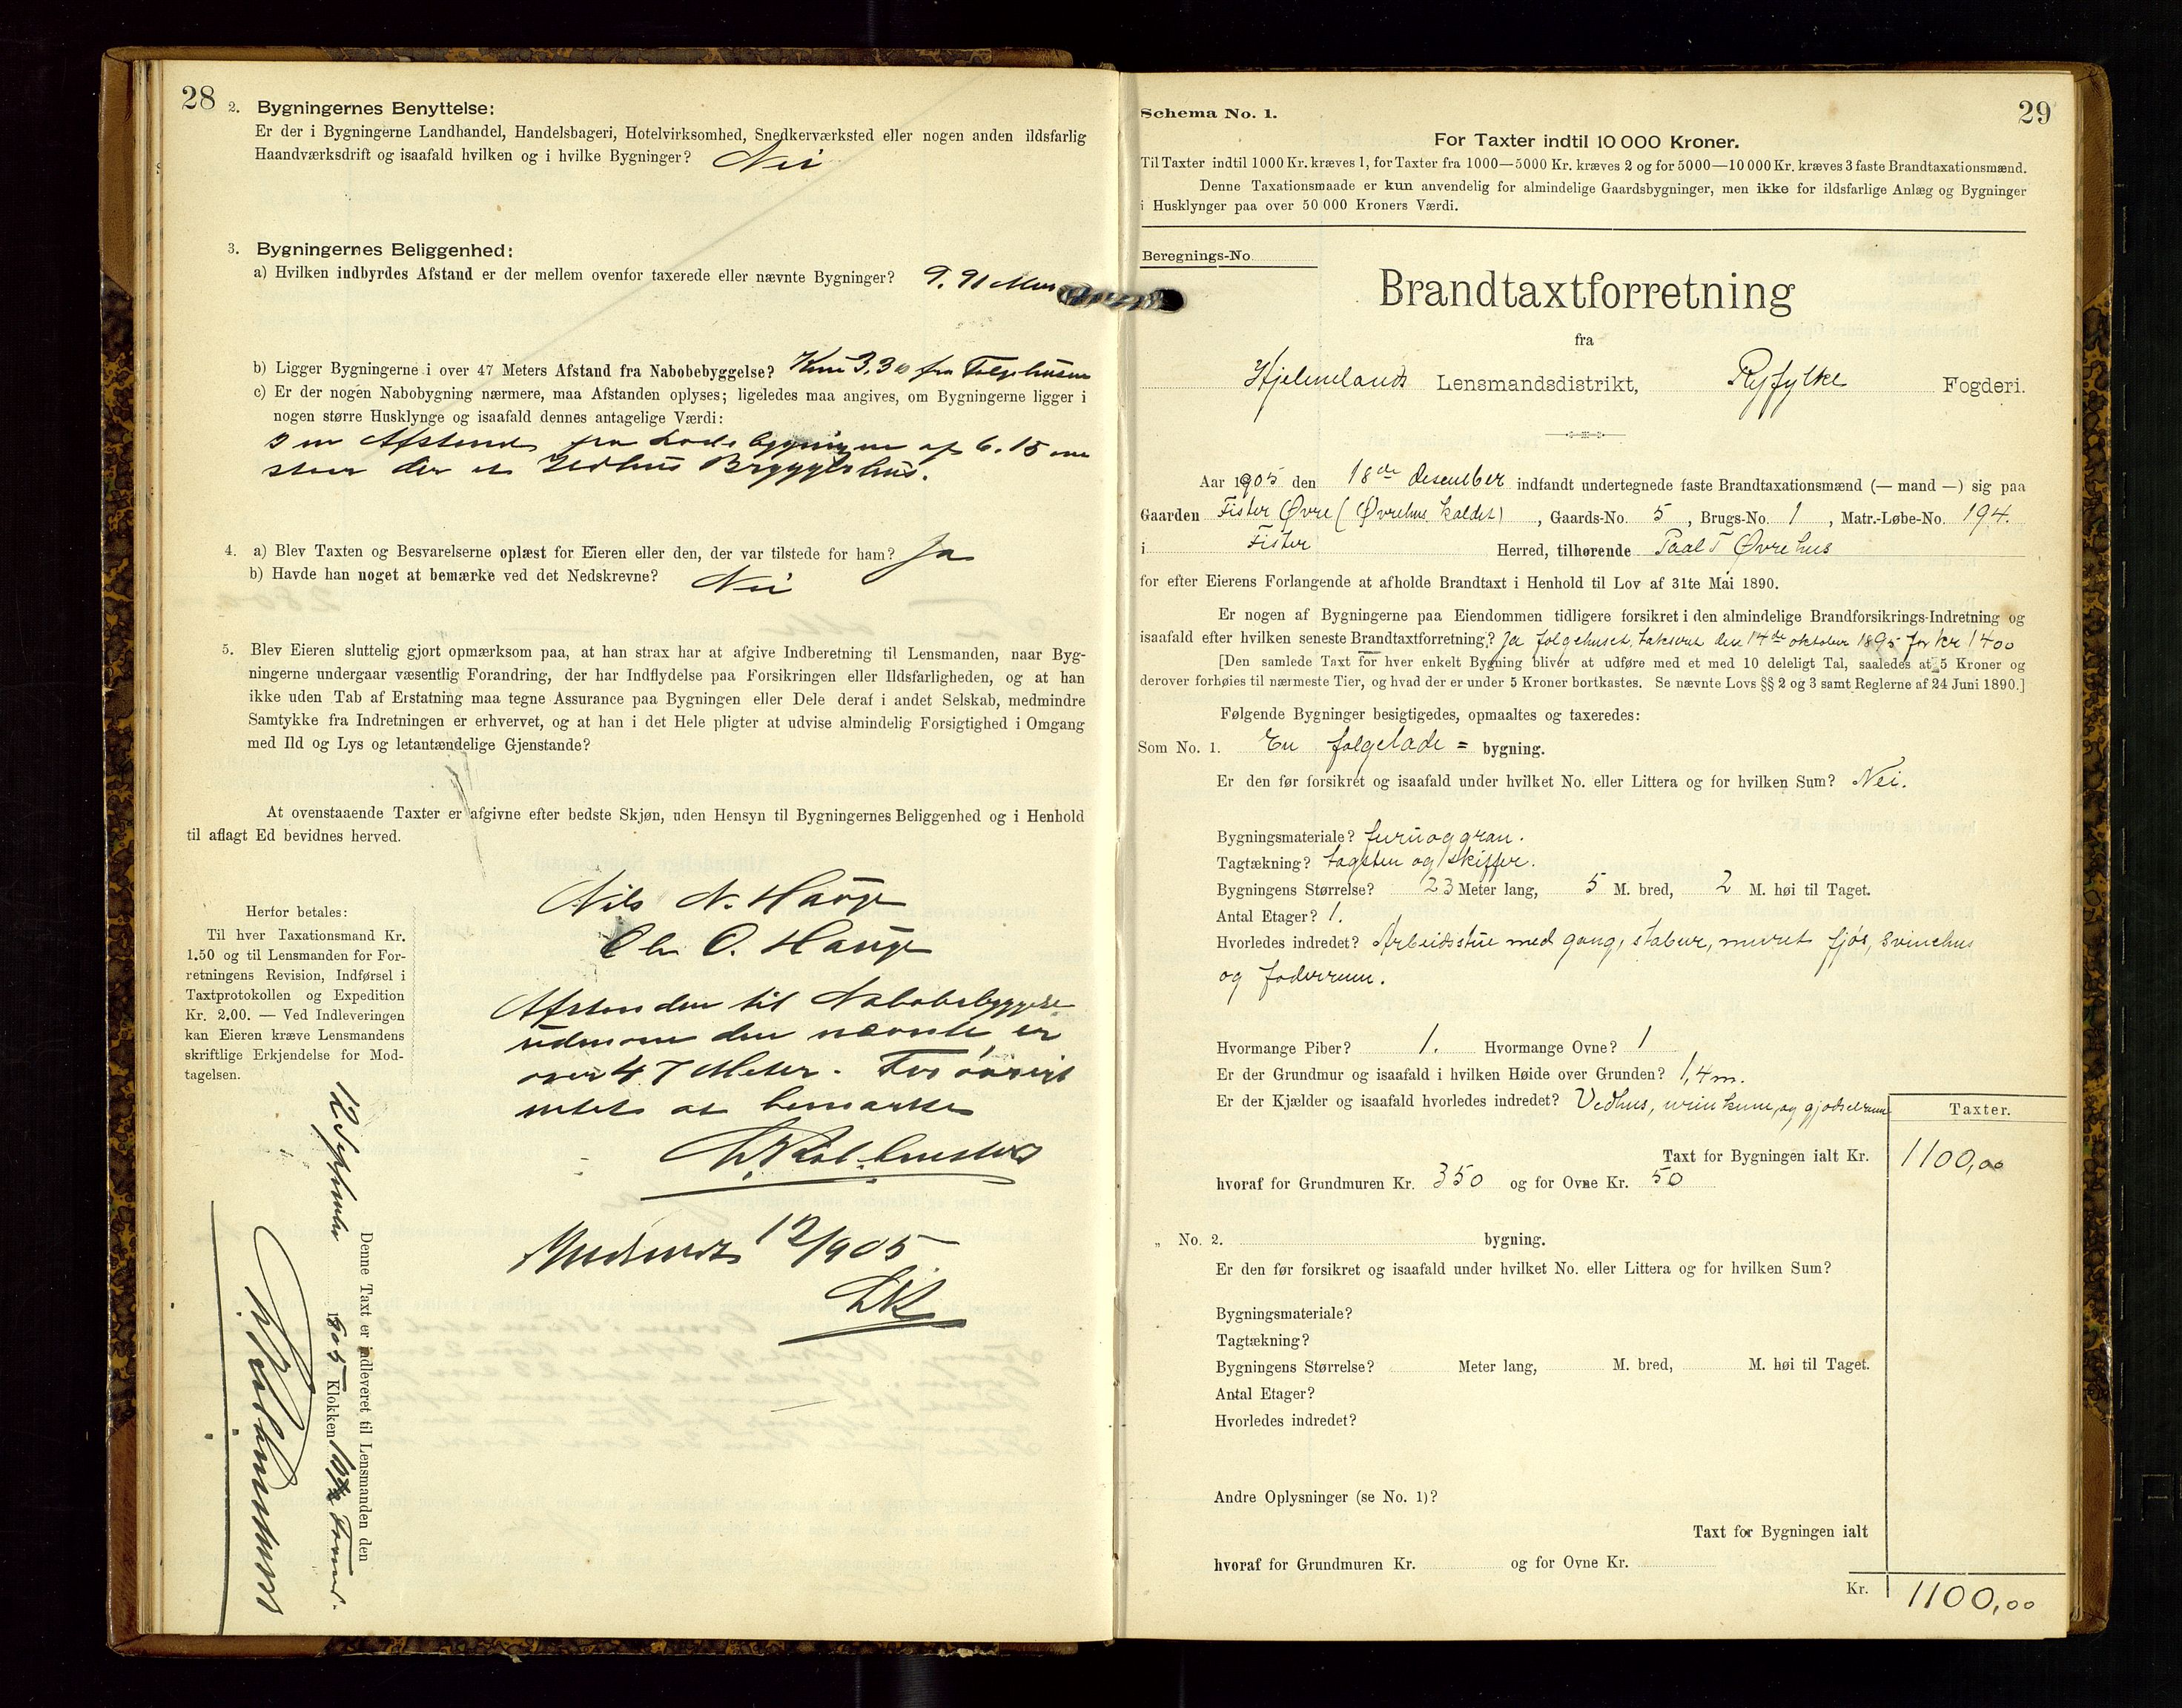 28
2. Bygningernes Benyttelse:
Er der i Bygningerne Landhandel, Handelsbageri, Hotelvirksomhed, Snedkerværksted eller nogen anden ildsfarlig
Haandværksdrift og isaafald hvilken og i hvilke Bygninger? Nei
3. Bygningernes Beliggenhed:
a) Hvilken indbyrdes Afstand er der mellem ovenfor taxerede eller nævnte Bygninger? 9.91
b) Ligger Bygningerne i over 47 Meters Afstand fra Nabobebyggelse? Kun 3,30 fra Folgehuset
c) Er der nogen Nabobygning nærmere, maa Afstanden oplyses; ligeledes maa angives, om Bygningerne ligger i
nogen større Husklynge og isaafald dennes antagelige Værdi:
I en Afstand fra Ladebygningen af 6.15 m
staar der et Ildhus Bryggerhus.
4. a) Blev Taxten og Besvarelserne oplæst for Eieren eller den, der var tilstede for ham? Ja
b) Havde han noget at bemærke ved det Nedskrevne? Nei
5. Blev Eieren sluttelig gjort opmærksom paa, at han strax har at afgive Indberetning til Lensmanden, naar Byg-
ningerne undergaar væsentlig Forandring, der har Indflydelse paa Forsikringen eller Ildsfarligheden, og at han
ikke uden Tab af Erstatning maa tegne Assurance paa Bygningen eller Dele deraf i andet Selskab, medmindre
Samtykke fra Indretningen er erhvervet, og at han i det Hele pligter at udvise almindelig Forsigtighed i Omgang
med Ild og Lys og letantændelige Gjenstande?
At ovenstaaende Taxter er afgivne efter bedste Skjøn, uden Hensyn til Bygningernes Beliggenhed og i Henhold
til aflagt Ed bevidnes herved.
Nils N. Hauge
Ole O. Hauge
Herfor betales:
Til hver Taxationsmand Kr.
1.50 og til Lensmanden for For-
retningens Revision, Indførsel i
Taxtprotokollen og Expedition
Kr. 2.00. — Ved Indleveringen
kan Eieren kræve Lensmandens
skriftlige Erkjendelse for Mod-
tagelsen.
Afstanden til Nabobebyggelse
udenom den nævnte er
over 47 Meter. Forøvrigt
intet at bemærke
12/905
Denne Taxt er indleveret til Lensmanden den
12 September 1905 Klokken 10 Formd.
29
Schema No. 1.
For Taxter indtil 10 000 Kroner.
Til Taxter indtil 1000 Kr. kræves 1, for Taxter fra 1000—5000 Kr. kræves 2 og for 5000—10 000 Kr. kræves 3 faste Brandtaxationsmænd.
Denne Taxationsmaade er kun anvendelig for almindelige Gaardsbygninger, men ikke for ildsfarlige Anlæg og Bygninger
i Husklynger paa over 50 000 Kroners Værdi.
Beregnings-No.
Brandtaxtforretning
fra
Hjelmelands Lensmandsdistrikt, Ryfylke Fogderi.
Aar 1905 den 18de desember indfandt undertegnede faste Brandtaxationsmænd (— mand —) sig paa
Gaarden Fister Øvre (Øvrehus kaldet), Gaards-No. 5, Brugs-No. 1, Matr.-Løbe-No. 194.
i Fister Herred, tilhørende Paal T Øvrehus
for efter Eierens Forlangende at afholde Brandtaxt i Henhold til Lov af 31te Mai 1890.
Er nogen af Bygningerne paa Eiendommen tidligere forsikret i den almindelige Brandforsikrings-Indretning og
isaafald efter hvilken seneste Brandtaxtforretning? Ja folgehuset, takseret den 14de oktober 1895 for kr 1400
[Den samlede Taxt for hver enkelt Bygning bliver at udføre med et med 10 deleligt Tal, saaledes at 5 Kroner og
derover forhøies til nærmeste Tier, og hvad der er under 5 Kroner bortkastes. Se nævnte Lovs §§ 2 og 3 samt Reglerne af 24 Juni 1890.]
Følgende Bygninger besigtigedes, opmaaltes og taxeredes:
Som No. 1. En folgelade = bygning.
Er den før forsikret og isaafald under hvilket No. eller Littera og for hvilken Sum? Nei.
Bygningsmateriale? furu og gran.
Tagtækning? tagsten og skiffer.
Bygningens Størrelse? 23 Meter lang, 5 M. bred, 2 M. høi til Taget.
Antal Etager? 1.
Hvorledes indredet? Arbeidsstue med gang, stabur, muret fjøs, svinehus
og foderrum.
Hvormange Piber? 1. Hvormange Ovne? 1
Er der Grundmur og isaafald i hvilken Høide over Grunden? 1,4 m.
Er der Kjælder og isaafald hvorledes indredet? Vedhus, urinkum, og gjødselrum
Taxter.
Taxt for Bygningen ialt Kr. 1100,00
hvoraf for Grundmuren Kr. 350 og for Ovne Kr. 50
„ No. 2. bygning.
Er den før forsikret og isaafald under hvilket No. eller Littera og for hvilken Sum?
Bygningsmateriale?
Tagtækning?
Bygningens Størrelse? Meter lang, M. bred, M. høi til Taget.
Antal Etager?
Hvorledes indredet?
Andre Oplysninger (se No. 1)?
Taxt for Bygningen ialt
hvoraf for Grundmuren Kr. og for Ovne Kr.
Kr. 1100,00